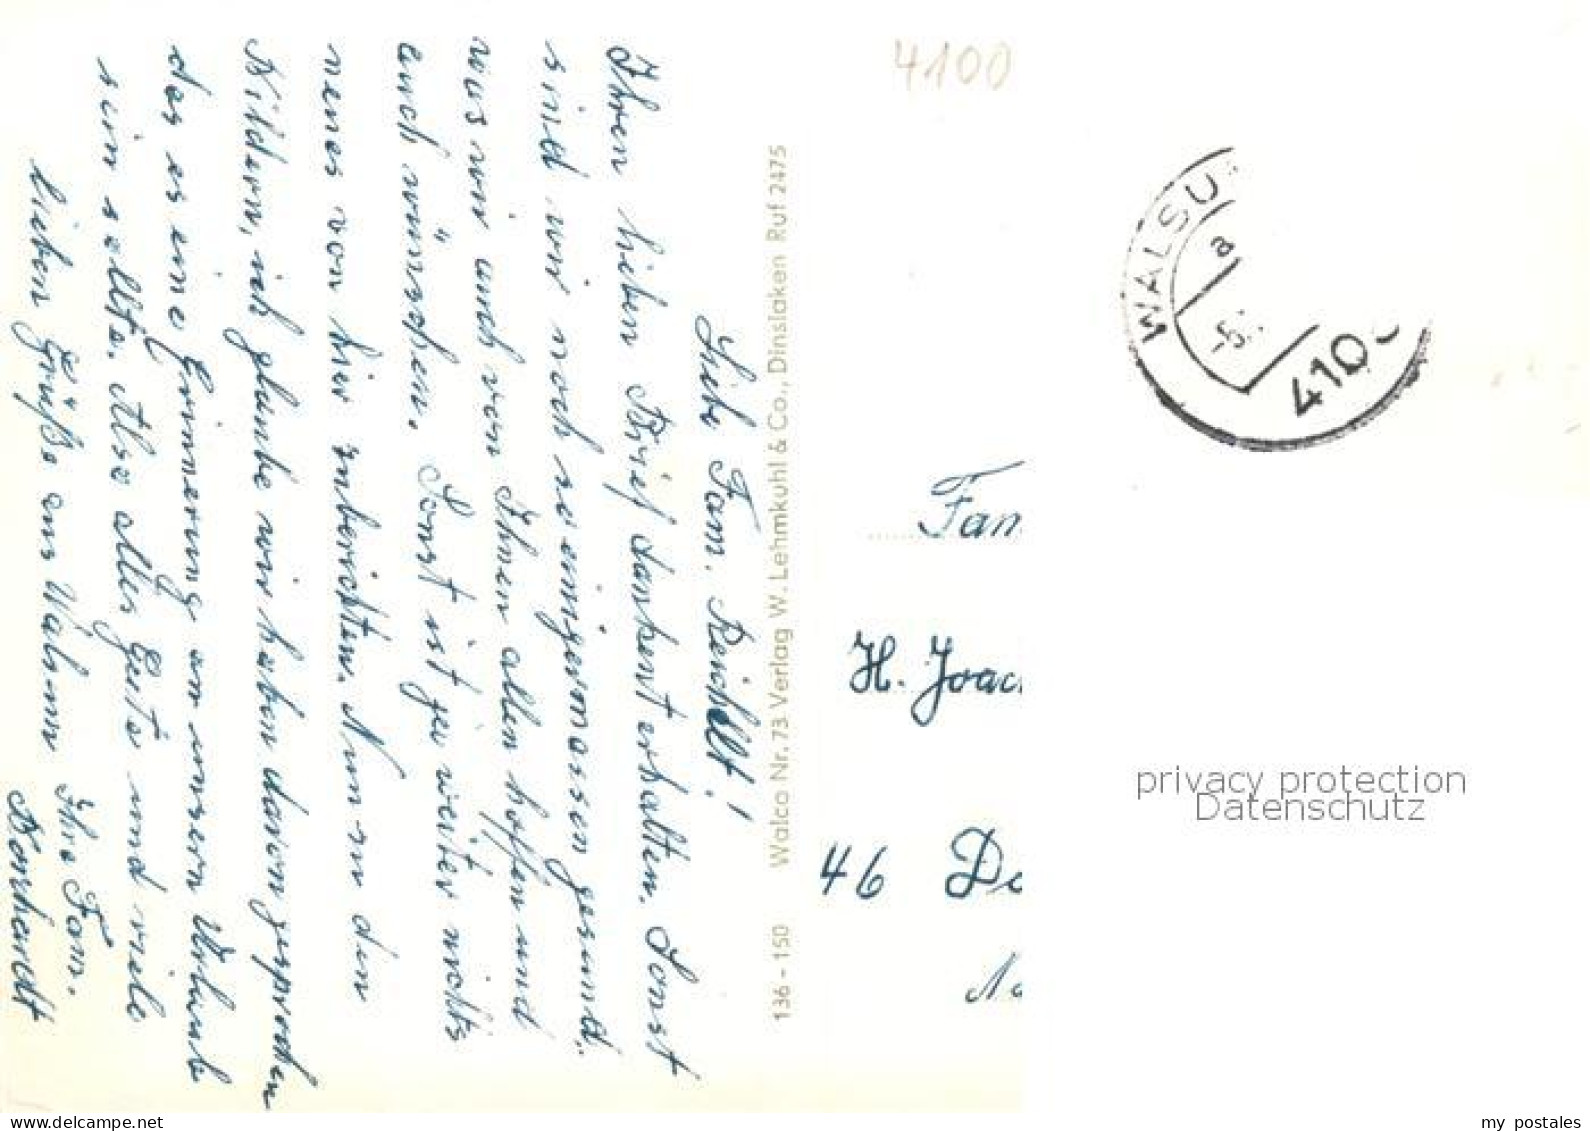 Liebe Fam. Reichelt!
Ihren lieben Brief dankent erhalten. Sonst
sind wir noch so einigermassen gesund.
was wir auch von Ihnen allen hoffen und
auch wünschen. Sonst ist ja weiter nichts
neues von hier zuberichten. Nun zu den
Bildern, ich glaube wir haben davon gesprochen
das es eine Erinnerung an unsern Urlaub
sein sollte. Also alles Gute und viele
lieben Grüße aus Walsum
Ihre Fam.
136 - 150 Walco Nr. 73 Verlag W. Lehmkuhl & Co., Dinslaken Ruf 2475
4100
WALSU
a
-5.
4100
Fam
H. Joac
46 Do
privacy protection
Datenschutz
delcampe.net
my postales